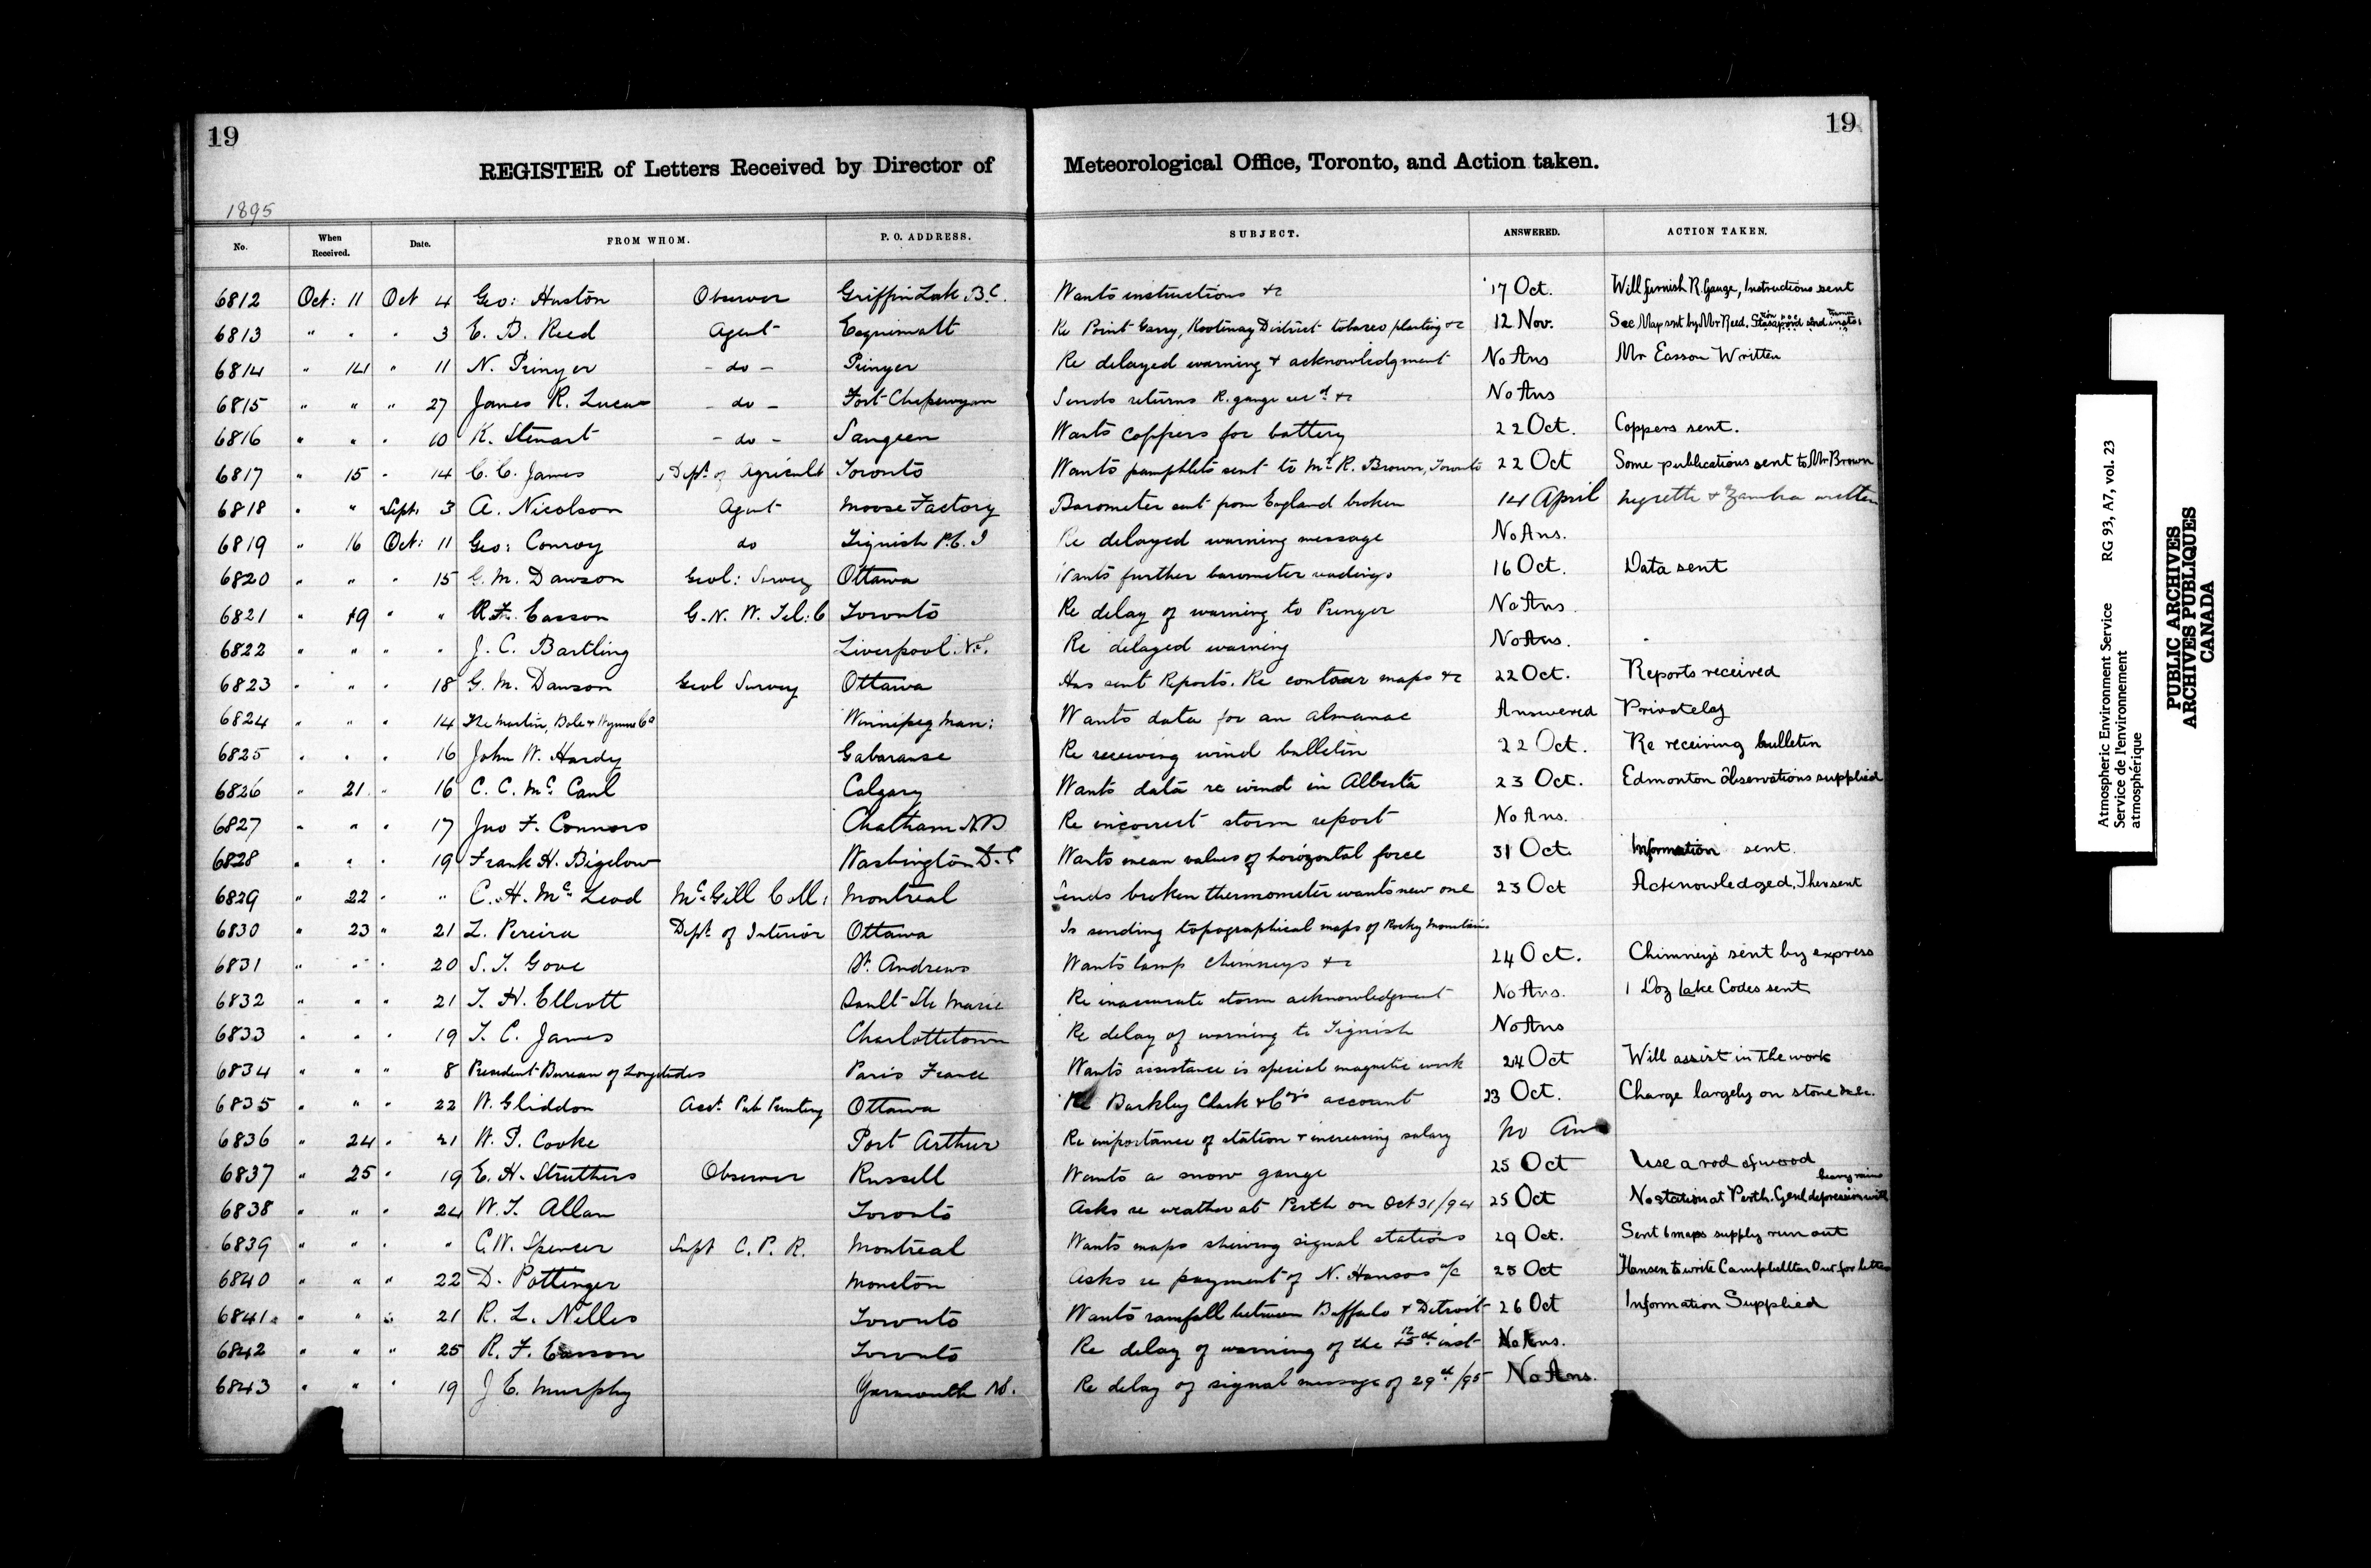 19
19
REGISTER of Letters Received by Director of Meteorological Office, Toronto, and Action taken.
1895
No. When Received. Date. FROM WHOM. P. O. ADDRESS. SUBJECT. ANSWERED. ACTION TAKEN.
6812 Oct: 11 Oct 4 Geo: Huston Observer Griffin Lake B.C. Wants instructions &c 17 Oct. Will furnish R. Gauge, Instructions sent
6813 " " " 3 E. B. Reed Agent Esquimalt Re Point Garry, Kootenay District tobacco planting &c 12 Nov. See Map sent by Mr Reed.
6814 " 14 " 11 N. Prinyer - do - Prinyer Re delayed warning & acknowledgment No Ans Mr Easson Written
6815 " " " 27 James R. Lucas - do - Fort Chepewyan Sends returns R. gauge recd &c No Ans
6816 " " " 10 K. Stewart - do - Saugeen Wants coppers for battery 22 Oct. Coppers sent.
6817 " 15 " 14 C. C. James Dept of Agricult Toronto Wants pamphlets sent to Mr R. Brown, Toronto 22 Oct Some publications sent to Mr Brown
6818 " " Sept. 3 A. Nicolson Agent Moose Factory Barometer sent from England broken 14 April Negretti & Zambra written
6819 " 16 Oct: 11 Geo: Conroy do Tignish P.E.I Re delayed warning message No Ans.
6820 " " " 15 G. M. Dawson Geol: Survey Ottawa Wants further barometer readings 16 Oct. Data sent
6821 " 19 " " R. F. Easson G. N. W. Tel: C Toronto Re delay of warning to Prinyer No Ans.
6822 " " " " J. C. Bartling Liverpool. N.S. Re delayed warning No Ans.
6823 " " " 18 G. M. Dawson Geol Survey Ottawa Has sent Reports. Re contour maps &c 22 Oct. Reports received
6824 " " " 14 The Martin, Bole & Wynne Co Winnipeg Man: Wants data for an almanac Answered Privately
6825 " " " 16 John W. Hardy Gabarouse Re receiving wind bulletin 22 Oct. Re receiving bulletin
6826 " 21 " 16 C. C. McCaul Calgary Wants data re wind in Alberta 23 Oct. Edmonton observations supplied
6827 " " " 17 Jno F. Connors Chatham N.B Re incorrect storm report No Ans.
6828 " " " 19 Frank H. Bigelow Washington D.C Wants mean values of horizontal force 31 Oct. Information sent.
6829 " 22 " " C. H. McLeod McGill Coll: Montreal Sends broken thermometer wants new one 23 Oct Acknowledged, Ther sent
6830 " 23 " 21 L. Pereira Dept of Interior Ottawa Is sending topographical maps of Rocky Mountains
6831 " " " 20 S. T. Gove St. Andrews Wants lamp chimneys &c 24 Oct. Chimneys sent by express
6832 " " " 21 T. H. Elliott Sault Ste Marie Re inaccurate storm acknowledgment No Ans. 1 Doz Lake Codes sent
6833 " " " 19 T. C. James Charlottetown Re delay of warning to Tignish No Ans
6834 " " " 8 President Bureau of Longitudes Paris France Wants assistance is special magnetic work 24 Oct Will assist in the work
6835 " " " 22 W. Gliddon Acct. Pub Printing Ottawa Re Barkley Clark & Co's account 23 Oct. Charge largely on stone
6836 " 24 " 21 W. P. Cooke Port Arthur Re importance of station & increasing salary No An
6837 " 25 " 19 E. H. Struthers Observer Russell Wants a snow gauge 25 Oct Use a rod of wood
6838 " " " 24 W. T. Allan Toronto Asks re weather at Perth on Oct 31/94 25 Oct No station at Perth. Genl depression with heavy rains
6839 " " " " C. W. Spencer Supt C. P. R. Montreal Wants maps shewing signal stations 29 Oct. Sent 6 maps supply run out
6840 " " " 22 D. Pottinger Moncton Asks re payment of N. Hansons a/c 25 Oct Hansen to write Campbellton Our for letter
6841 " " " 21 R. L. Nelles Toronto Wants rainfall between Buffalo & Detroit 26 Oct Information Supplied
6842 " " " 25 R. F. Easson Toronto Re delay of warning of the 12th inst No Ans.
6843 " " " 19 J. E. Murphy Yarmouth N.S. Re delay of signal message of 29th/95 No Ans.
Atmospheric Environment Service RG 93, A7, vol. 23
Service de l'environnement
atmosphérique
PUBLIC ARCHIVES
ARCHIVES PUBLIQUES
CANADA